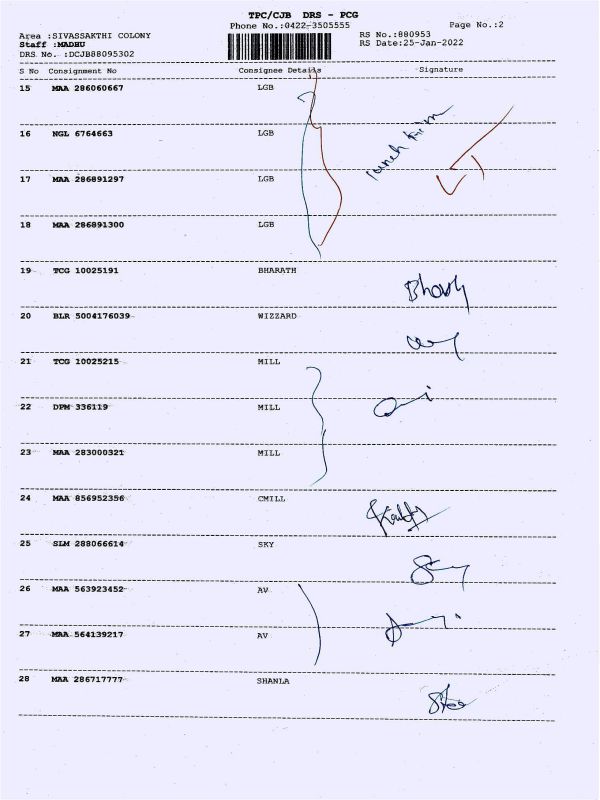 TPC/CJB DRS - PCG
Phone No.:0422-3505555
Page No.:2
Area :SIVASSAKTHI COLONY
RS No.:880953
Staff :MADHU
RS Date:25-Jan-2022
DRS No. :DCJB88095302
S No Consignment No Consignee Details Signature
15 MAA 286060667 LGB
16 NGL 6764663 LGB
17 MAA 286891297 LGB
18 MAA 286891300 LGB
19 TCG 10025191 BHARATH
20 BLR 5004176039 WIZZARD
21 TCG 10025215 MILL
22 DPM 336119 MILL
23 MAA 283000321 MILL
24 MAA 856952356 CMILL
25 SLM 288066614 SKY
26 MAA 563923452 AV
27 MAA 564139217 AV
28 MAA 286717777 SHANLA